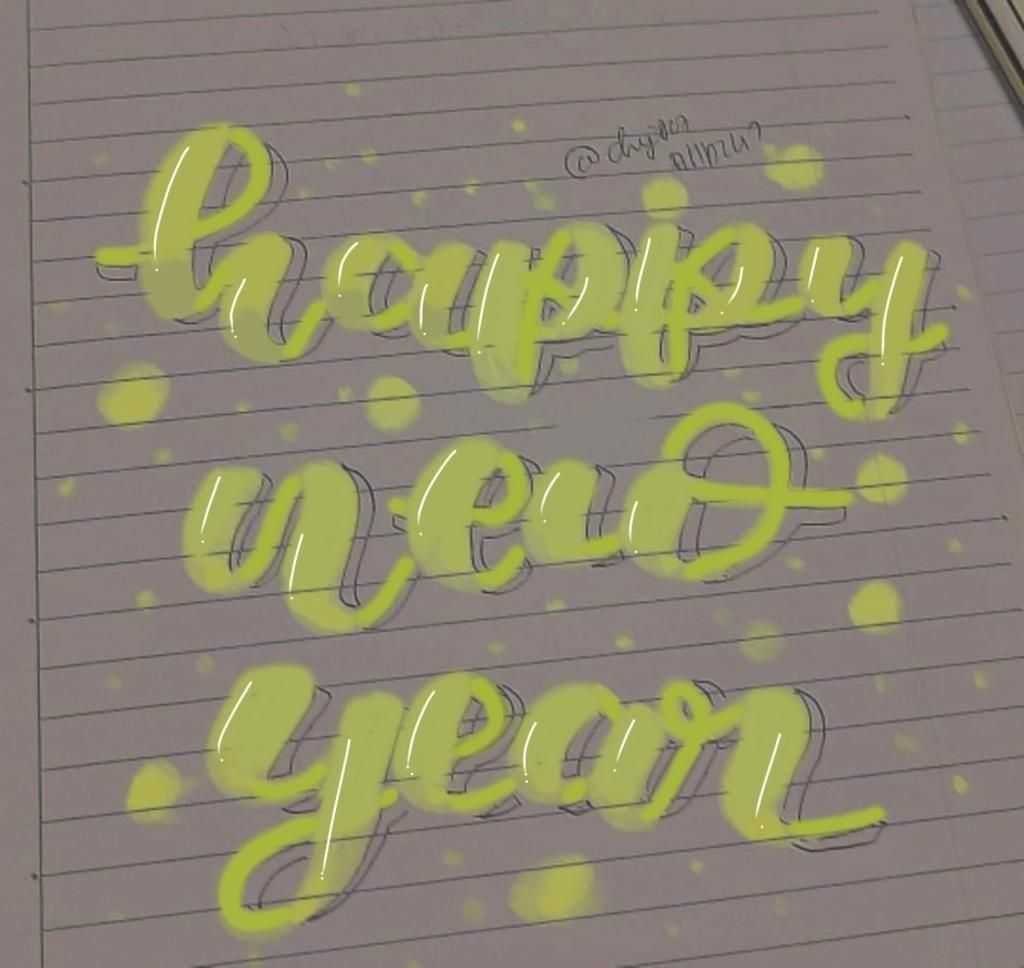 happy
new
year